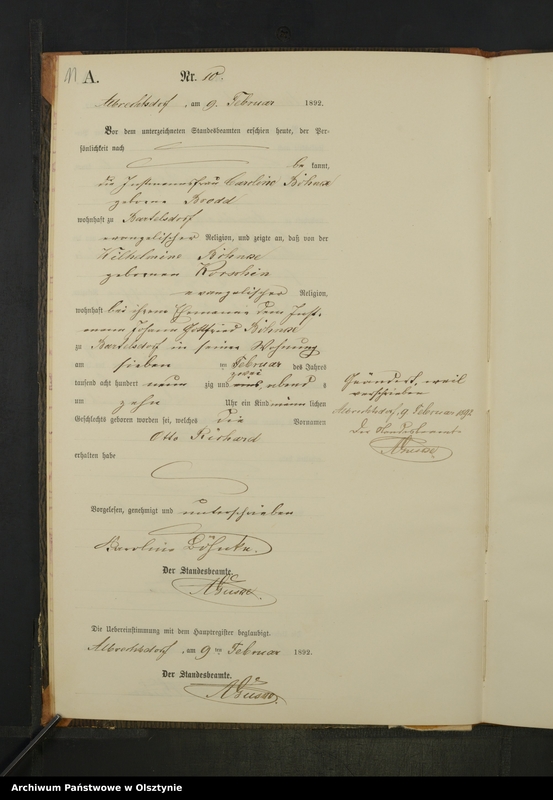 11 A. Nr. 10.
Albrechtsdorf, am 9. Februar 1892.
Vor dem unterzeichneten Standesbeamten erschien heute, der Per-
sönlichkeit nach
be kannt,
die Instmannsfrau Caroline Böhnke
geborene
wohnhaft zu Bartelsdorf
evangelischer Religion, und zeigte an, daß von der
Wilhelmine Böhnke
geborenen
evangelischer Religion,
wohnhaft bei ihrem Ehemanne dem Inst-
mann Johann Gottfried Böhnke
zu Bartelsdorf in seiner Wohnung
am sieben ten Februar des Jahres
zwei
tausend acht hundert neun zig und eins, abend s
um zehn Uhr ein Kind männ lichen
Geschlechts geboren worden sei, welches die Vornamen
Otto Richard
erhalten habe
Geändert, weil
verschrieben
Albrechtsdorf, 9. Februar 1892
Der Standesbeamte
Vorgelesen, genehmigt und unterschrieben
Karoline Böhnke.
Der Standesbeamte.
Die Uebereinstimmung mit dem Hauptregister beglaubigt.
Albrechtsdorf, am 9ten Februar 1892.
Der Standesbeamte.
Archiwum Państwowe w Olsztynie